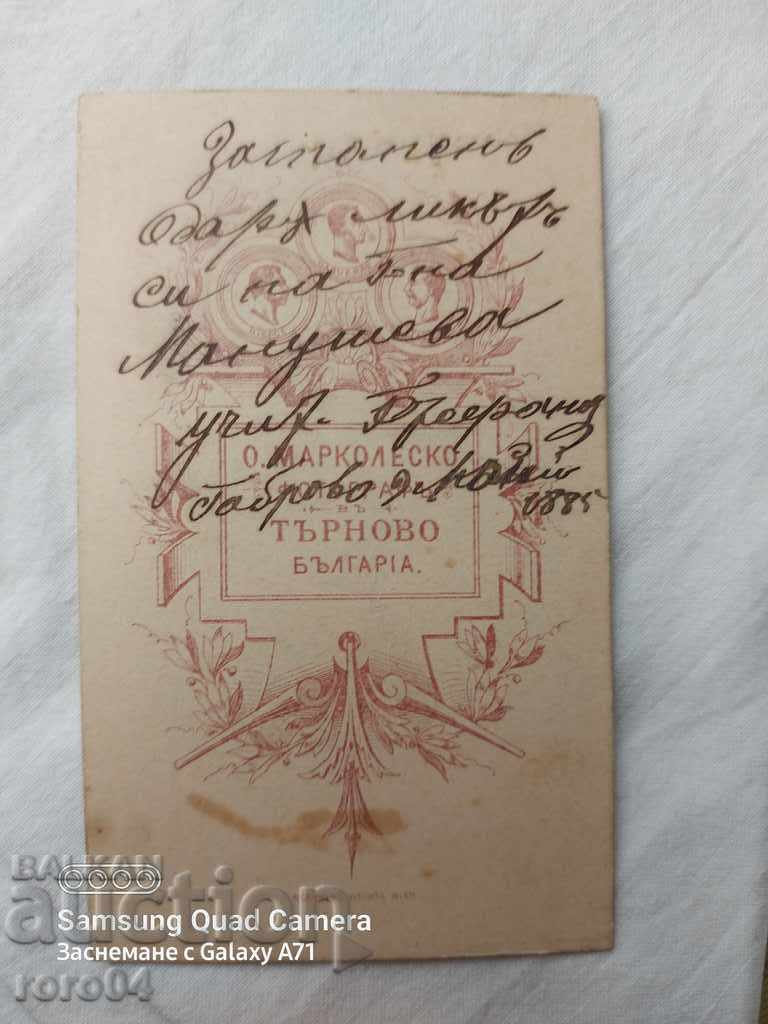 Запаменъ
дарх ликътъ
си на Г-на
Манушева
учит.
О. МАРКОЛЕСКО
Габрово 9 Май
1885
ВЪ
ТЪРНОВО
БЪЛГАРІА.
BALKAN
auction
Samsung Quad Camera
Заснемане с Galaxy A71
roro04